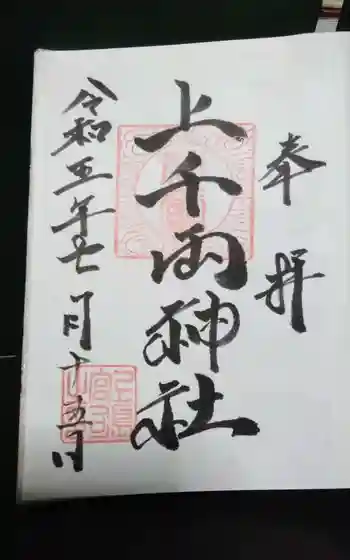 奉拝
上千雨神社
令和五年七月十五日